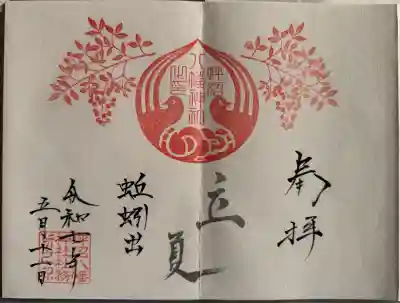 奉拝
八幡神社
之印
立夏
蚯蚓出
令和七年
五月十一日